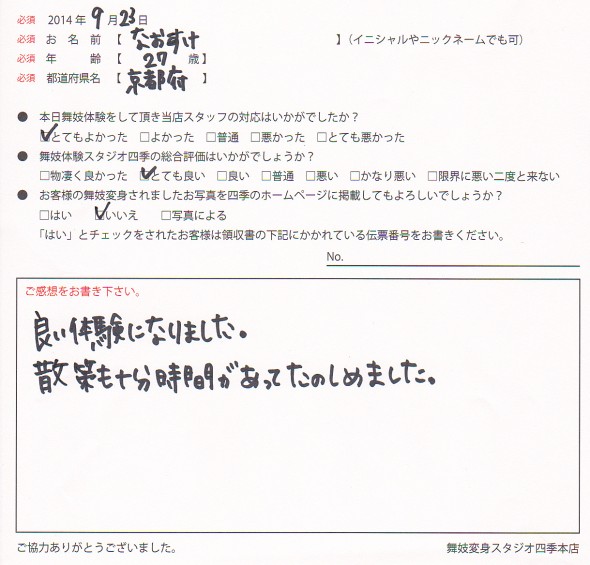 必須 2014年 9月23日
必須 お名前【 なおすけ 】(イニシャルやニックネームでも可)
必須 年齢【 27 歳】
必須 都道府県名【 京都府 】
● 本日舞妓体験をして頂き当店スタッフの対応はいかがでしたか?
☑とてもよかった □よかった □普通 □悪かった □とても悪かった
● 舞妓体験スタジオ四季の総合評価はいかがでしょうか?
□物凄く良かった ☑とても良い □良い □普通 □悪い □かなり悪い □限界に悪い二度と来ない
● お客様の舞妓変身されましたお写真を四季のホームページに掲載してもよろしいでしょうか?
□はい ☑いいえ □写真による
「はい」とチェックをされたお客様は領収書の下記にかかれている伝票番号をお書きください。
No.
ご感想をお書き下さい。
良い体験になりました。
散策も十分時間があってたのしめました。
ご協力ありがとうございました。 舞妓変身スタジオ四季本店